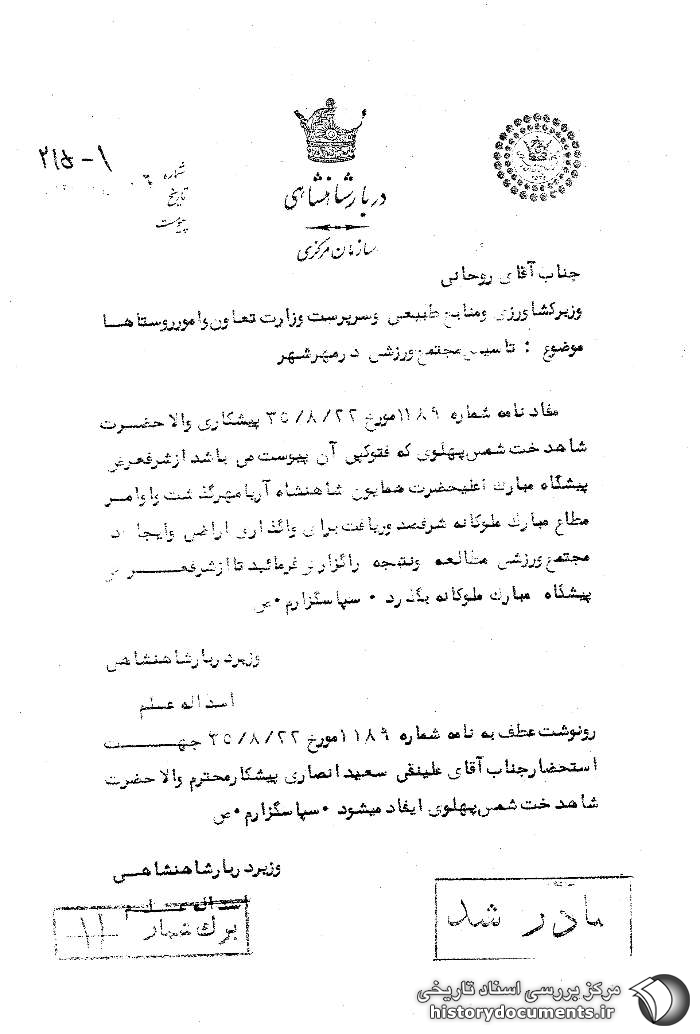 ۲۱۵-۱
شماره
تاریخ
پیوست
دربار شاهنشاهی
سازمان مرکزی
جناب آقای روحانی
وزیر کشاورزی ومنابع طبیعی وسرپرست وزارت تعاون وامور روستاها
موضوع : تاسیس مجتمع ورزشی درمهرشهر
مفاد نامه شماره ۱۱۸۹ مورخ ۳۵/۸/۲۲ پیشکاری والاحضرت
شاهدخت شمس پهلوی که فتوکپی آن پیوست می باشد ازشرفعرض
پیشگاه مبارک اعلیحضرت همایون شاهنشاه آریامهرگذشت واوامر
مطاع مبارک ملوکانه شرفصدوریافت برای واگذاری اراضی وایجاد
مجتمع ورزشی مطالعه ونتیجه راگزارش فرمائید تا ازشرفعرض
پیشگاه مبارک ملوکانه بگذرد . سپاسگزارم .ص
وزیردربارشاهنشاهی
اسداله علم
رونوشت عطف به نامه شماره ۱۱۸۹ مورخ ۳۵/۸/۲۲ جهت
استحضارجناب آقای علینقی سعید انصاری پیشکارمحترم والاحضرت
شاهدخت شمس پهلوی ایفاد میشود . سپاسگزارم .ص
وزیردربارشاهنشاهی
اسداله علم
صادر شد
برگ شمار ۱۱
مرکز بررسی اسناد تاریخی
historydocuments.ir